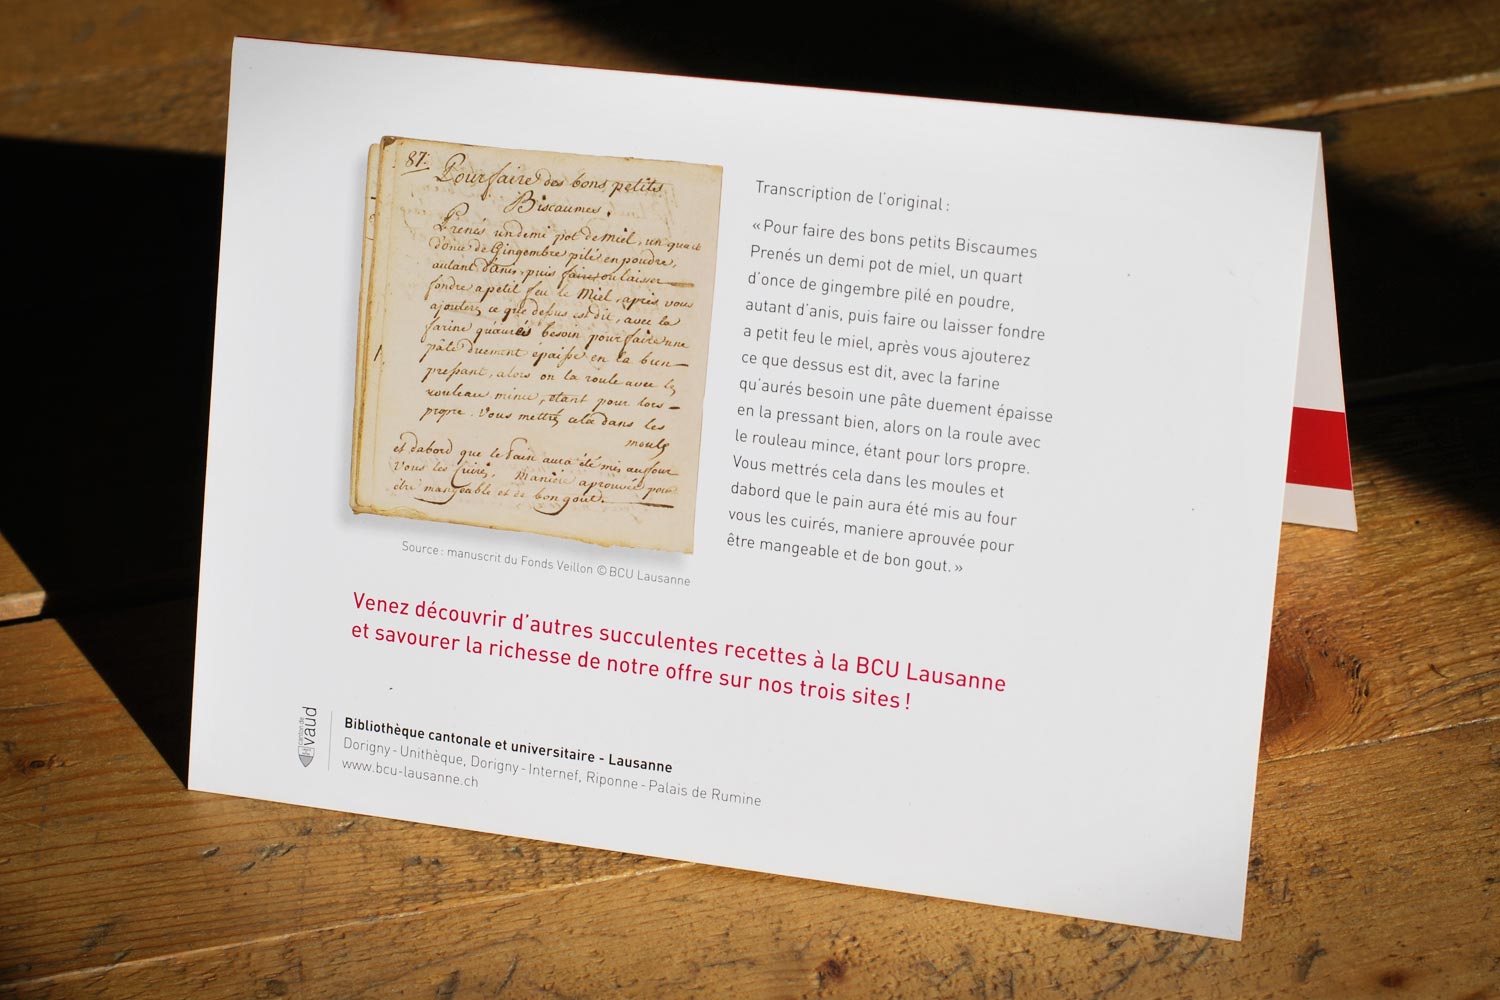 87.
Pour faire des bons petits
Biscaumes.
Prenés un demi pot de Miel, un quart
d'once de Gingembre pilé en poudre,
autant d'anis, puis faire ou laisser
fondre a petit feu le Miel, après vous
ajouterez ce que dessus est dit, avec la
farine qu'aurés besoin pour faire une
pâte duement épaisse en la bien
pressant, alors on la roule avec le
rouleau mince, étant pour lors
propre. Vous mettrés cela dans les
mouls
et dabord que le Pain aura été mis au four
vous les cuirés. Maniere aprouvée pour
être mangeable et de bon gout.
Source : manuscrit du Fonds Veillon © BCU Lausanne
Transcription de l'original :
« Pour faire des bons petits Biscaumes
Prenés un demi pot de miel, un quart
d'once de gingembre pilé en poudre,
autant d'anis, puis faire ou laisser fondre
a petit feu le miel, après vous ajouterez
ce que dessus est dit, avec la farine
qu'aurés besoin une pâte duement épaisse
en la pressant bien, alors on la roule avec
le rouleau mince, étant pour lors propre.
Vous mettrés cela dans les moules et
dabord que le pain aura été mis au four
vous les cuirés, maniere aprouvée pour
être mangeable et de bon gout. »
Venez découvrir d'autres succulentes recettes à la BCU Lausanne
et savourer la richesse de notre offre sur nos trois sites !
canton de
vaud
Bibliothèque cantonale et universitaire - Lausanne
Dorigny - Unithèque, Dorigny - Internef, Riponne - Palais de Rumine
www.bcu-lausanne.ch